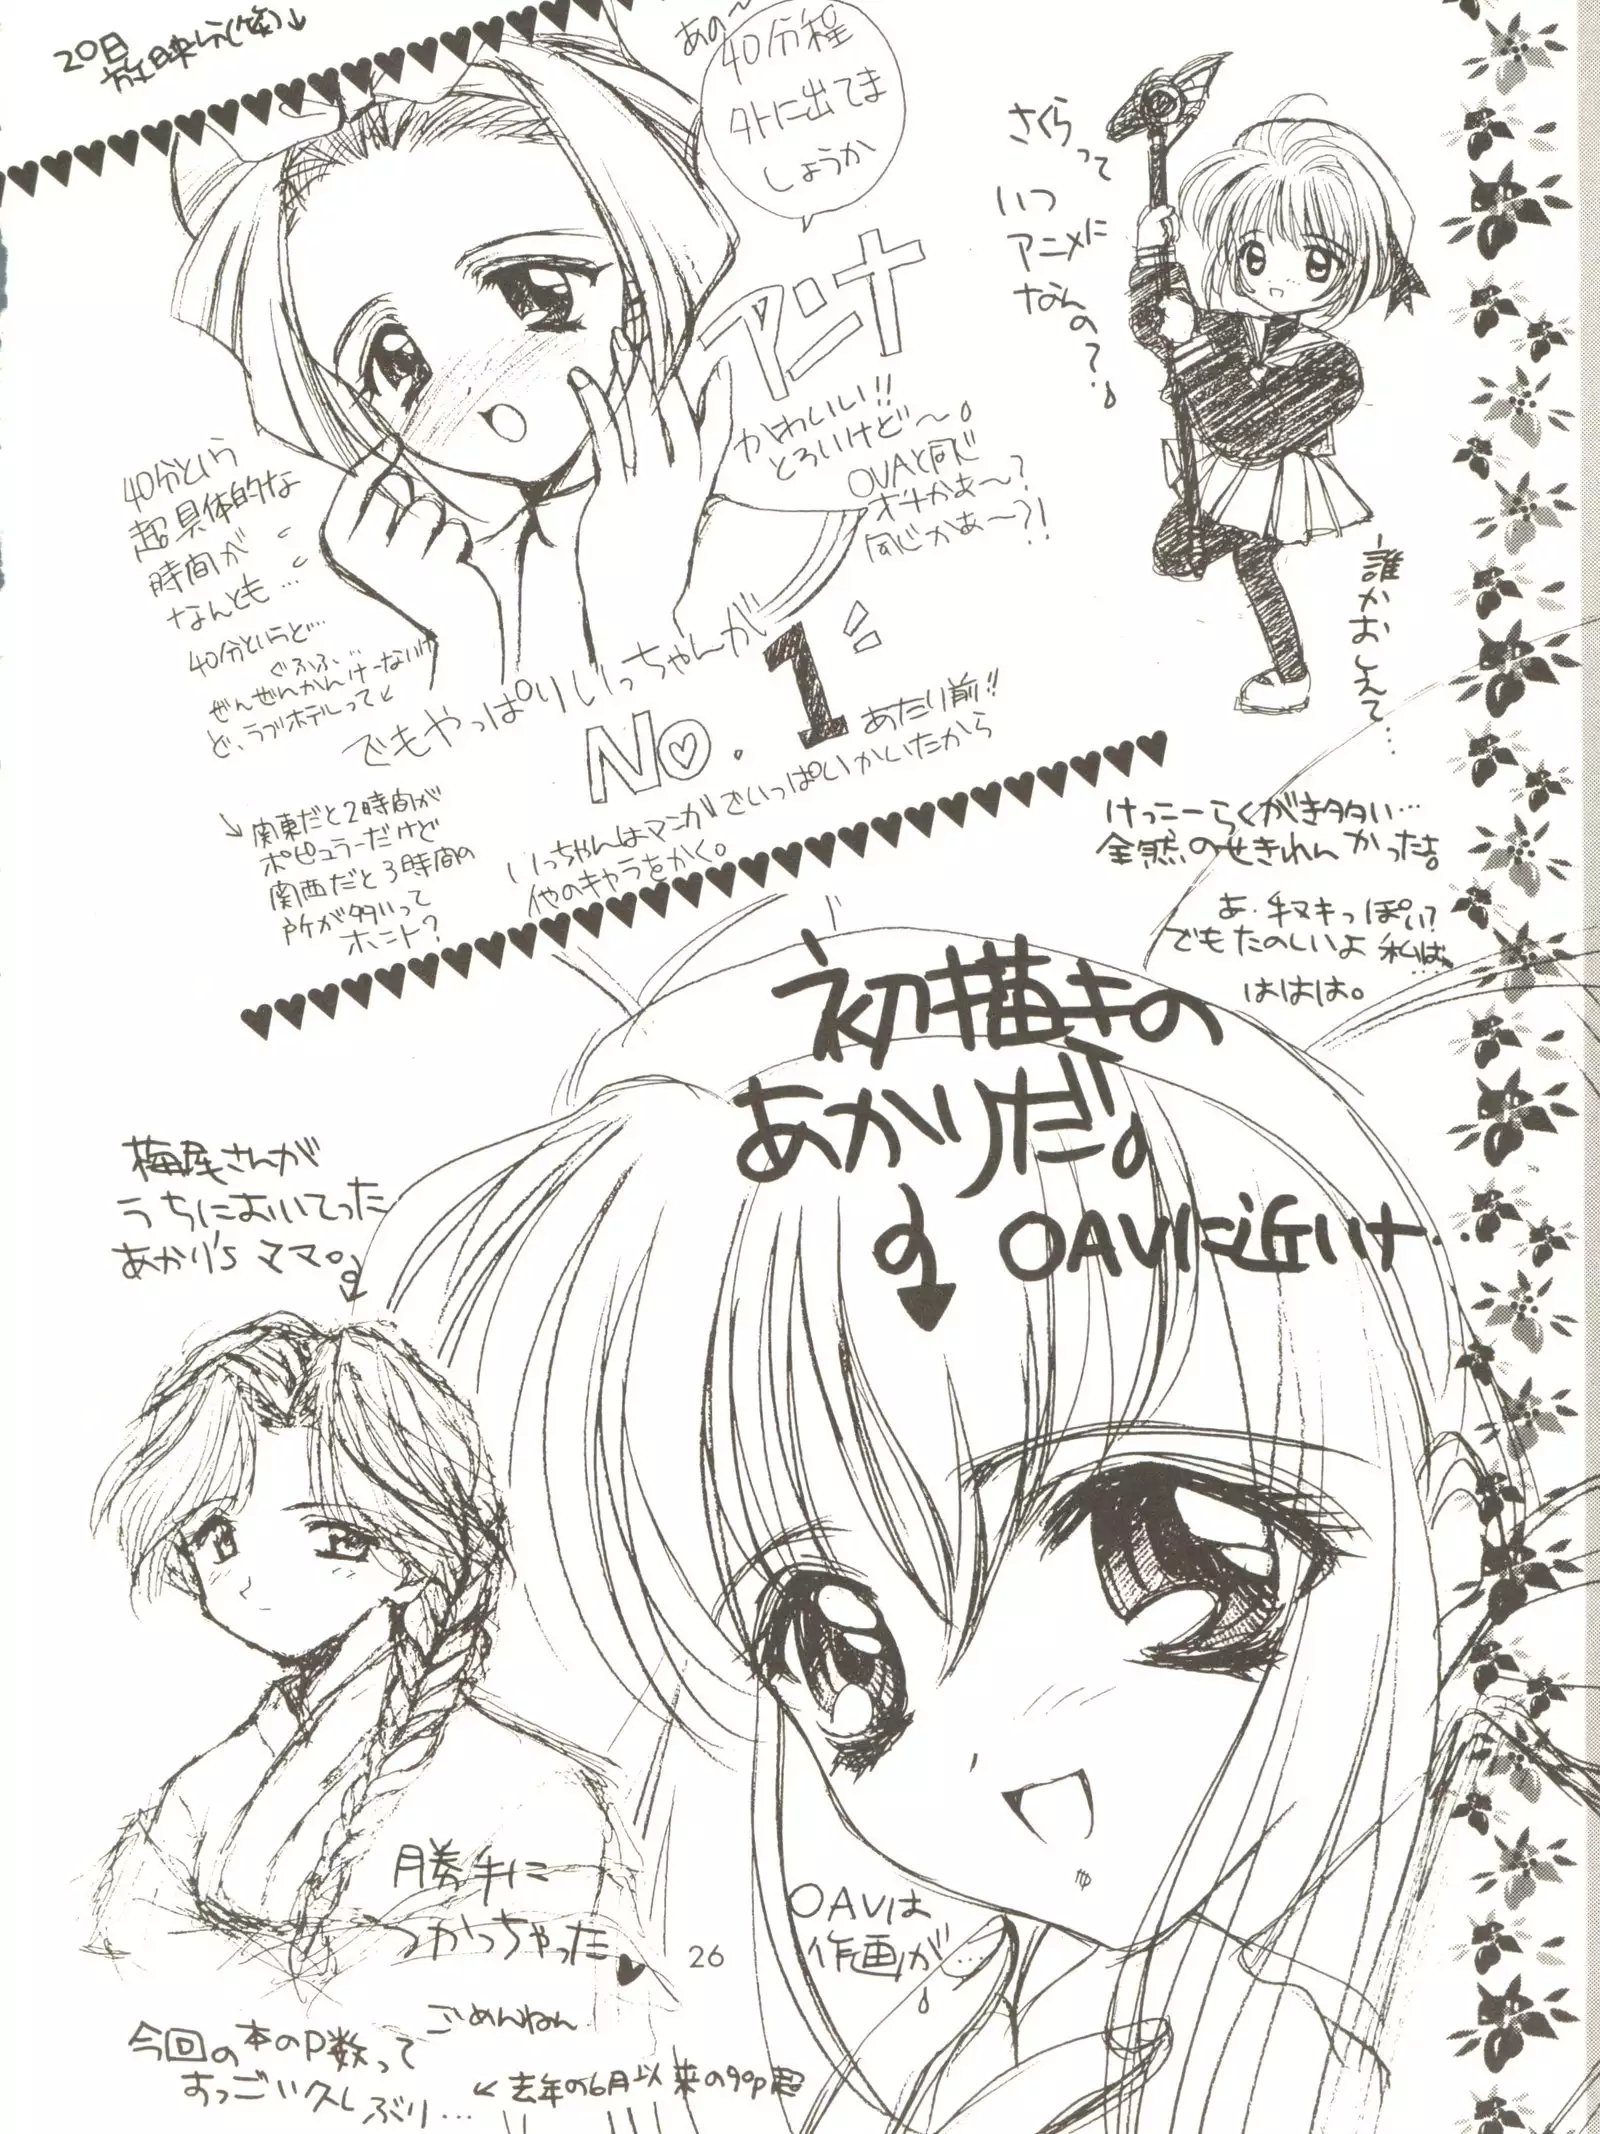 20日
放映分(笑)↓
あの〜
40分程
外に出てま
しょうか
アンナ
かわいい!!
とろいけど〜。
OVAと同じ
オチかぁ〜?
同じかぁ〜?!
40分という
超具体的な
時間が
なんとも…
40分というと…
ぐふふ
ぜんぜんかんけーないけ
ど、ラブホテルって
関東だと2時間が
ポピュラーだけど
関西だと3時間の
所が多いって
ホント?
でもやっぱりいっちゃんが
No.1
あたり前!!
いっちゃんはマンガでいっぱいかいたから
他のキャラをかく。
さくら
って
いつ
アニメに
なんの?
誰かおしえて…
けっこーらくがき多い…
全然のせきれんかった。
あ・キヌキっぽい?
でもたのしいよ私は
ははは。
初描きの
あかりだ。
OAVに近い
梅屋さんが
うちにおいてった
あかり'sママ。
勝手に
つかっちゃった
ごめんねん
OAVは
作画が…
26
今回の本のP数って
すっごい久しぶり…
←去年の6月以来の90p超